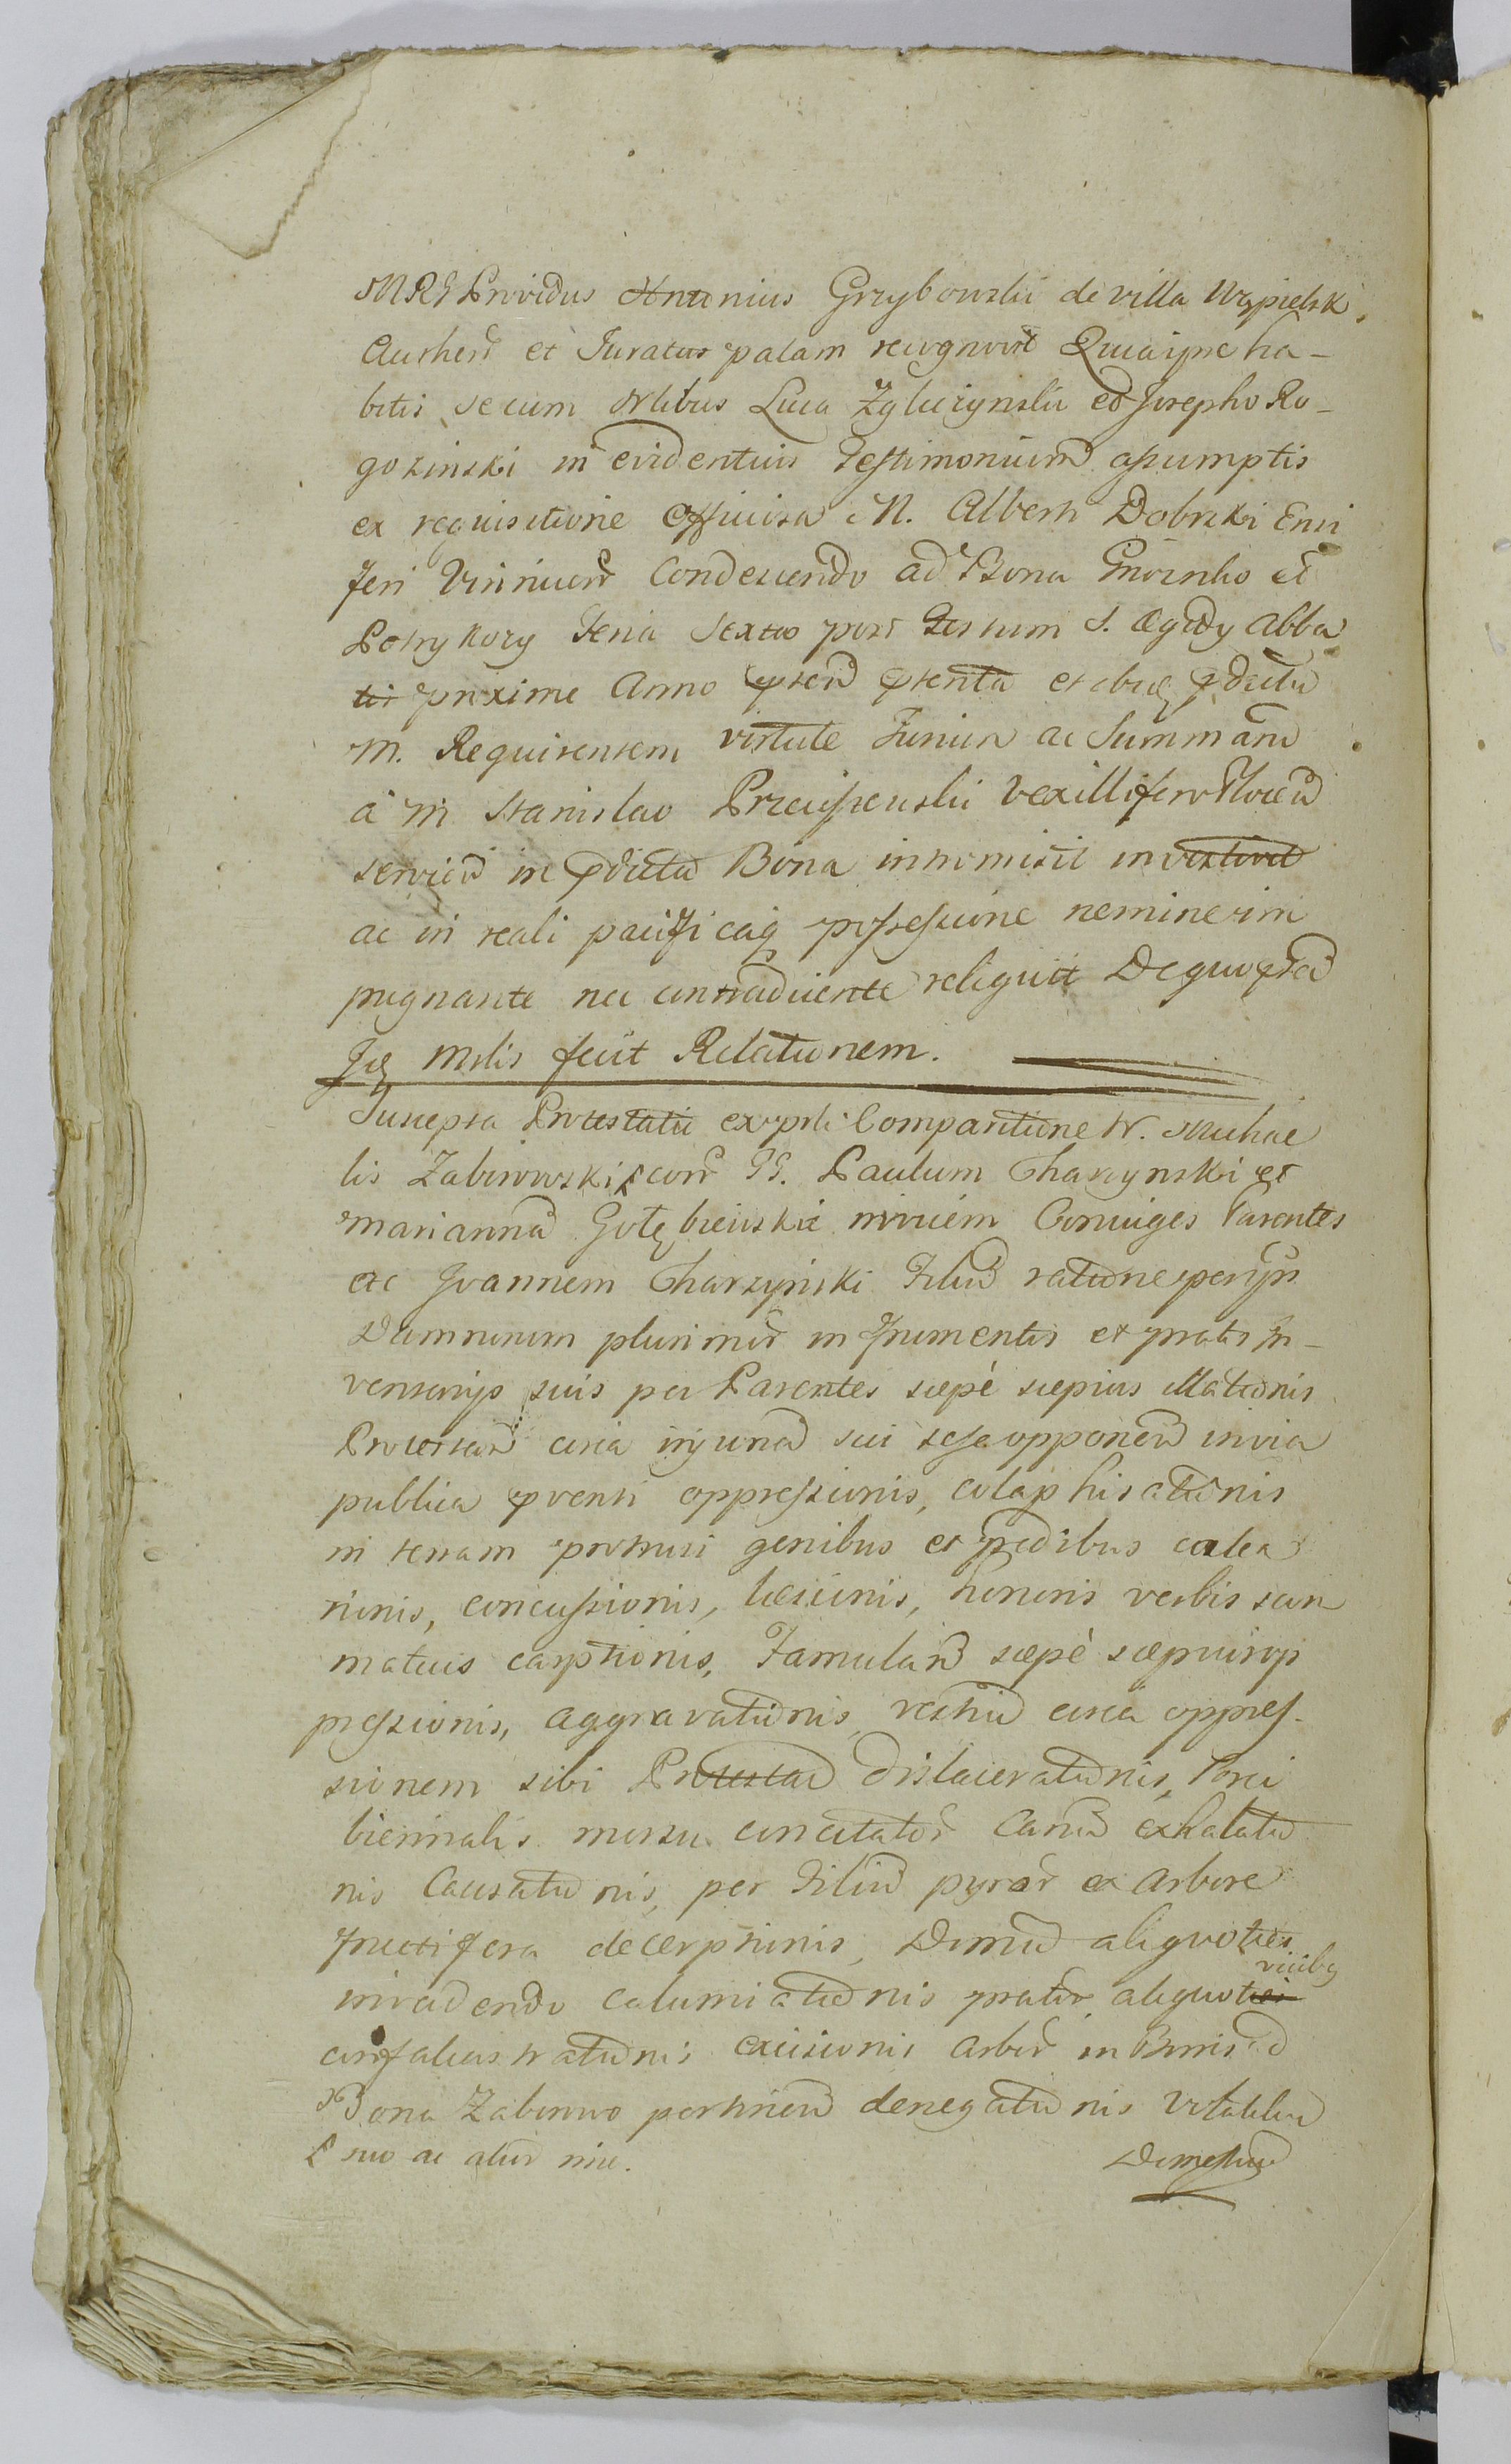 MRS Providus Antonius Grzybowski de villa Wypielsk.
Authen et Juratus palam recognovit Quia ipse ha-
bitis secum Nlibus Luca Zgliczynski et Josepho Ro-
goziński in evidentius Testimonium assumptis
ex requisitione Officiosa M. Alberti Dobrski Ensi
feri Vinnicen Condescendo ad Bona et
Potrykozy Feria Sexta post Festum S. Ægidy Abba
tis proxime Anno psen psenta et ibiq pdicta
M. Requirentem virtute Juriu ac Summaru
a M Stanislao Przeciszewski Vexillifero Plocen
servien in pdicta Bona intromisit investivit
ac in reali pacificaq possessione nemine im
pugnante nec contradicente reliquit De quo psen
Jdq Mslis fecit Relationem.
Suscepta Protestatio ex psli Comparitione N. Michae
lis Zaborowski con GG. Paulum Charzynski et
Marianna Gołębiewskie invicem Coniuges Parentes
ac Joannem Charzyński Filiu ratione per ips
Damnorum plurimor in frumentis et pratis In-
ventarijs suis per Parentes sæpè sæpius illationis
Protestan circa injuria sui sese opponen in via
publica pventi oppressionis, colaphisationis
in terram protrusi genibus et pedibus calca
tionis, concussionis, læsionis, honoris verbis scom
maticis carptionis, Famularu sæpè sæpius op
pressionis, aggravationis, vestiu circa oppres-
sionem sibi Protestan dislacerationis, Porci
biennalis morsu concitator Canu exhalatio
nis Causationis, per Filiu pyror ex arbore
fructifera decerptionis, Domu aliquoties
invadendo calumiationis prator, aliquoties vicibq
confalcastrationis excisionis arbor in Bonis ad
Bona Zaborowo pertinen denegationis
P suo ac alior nõie. Domestica